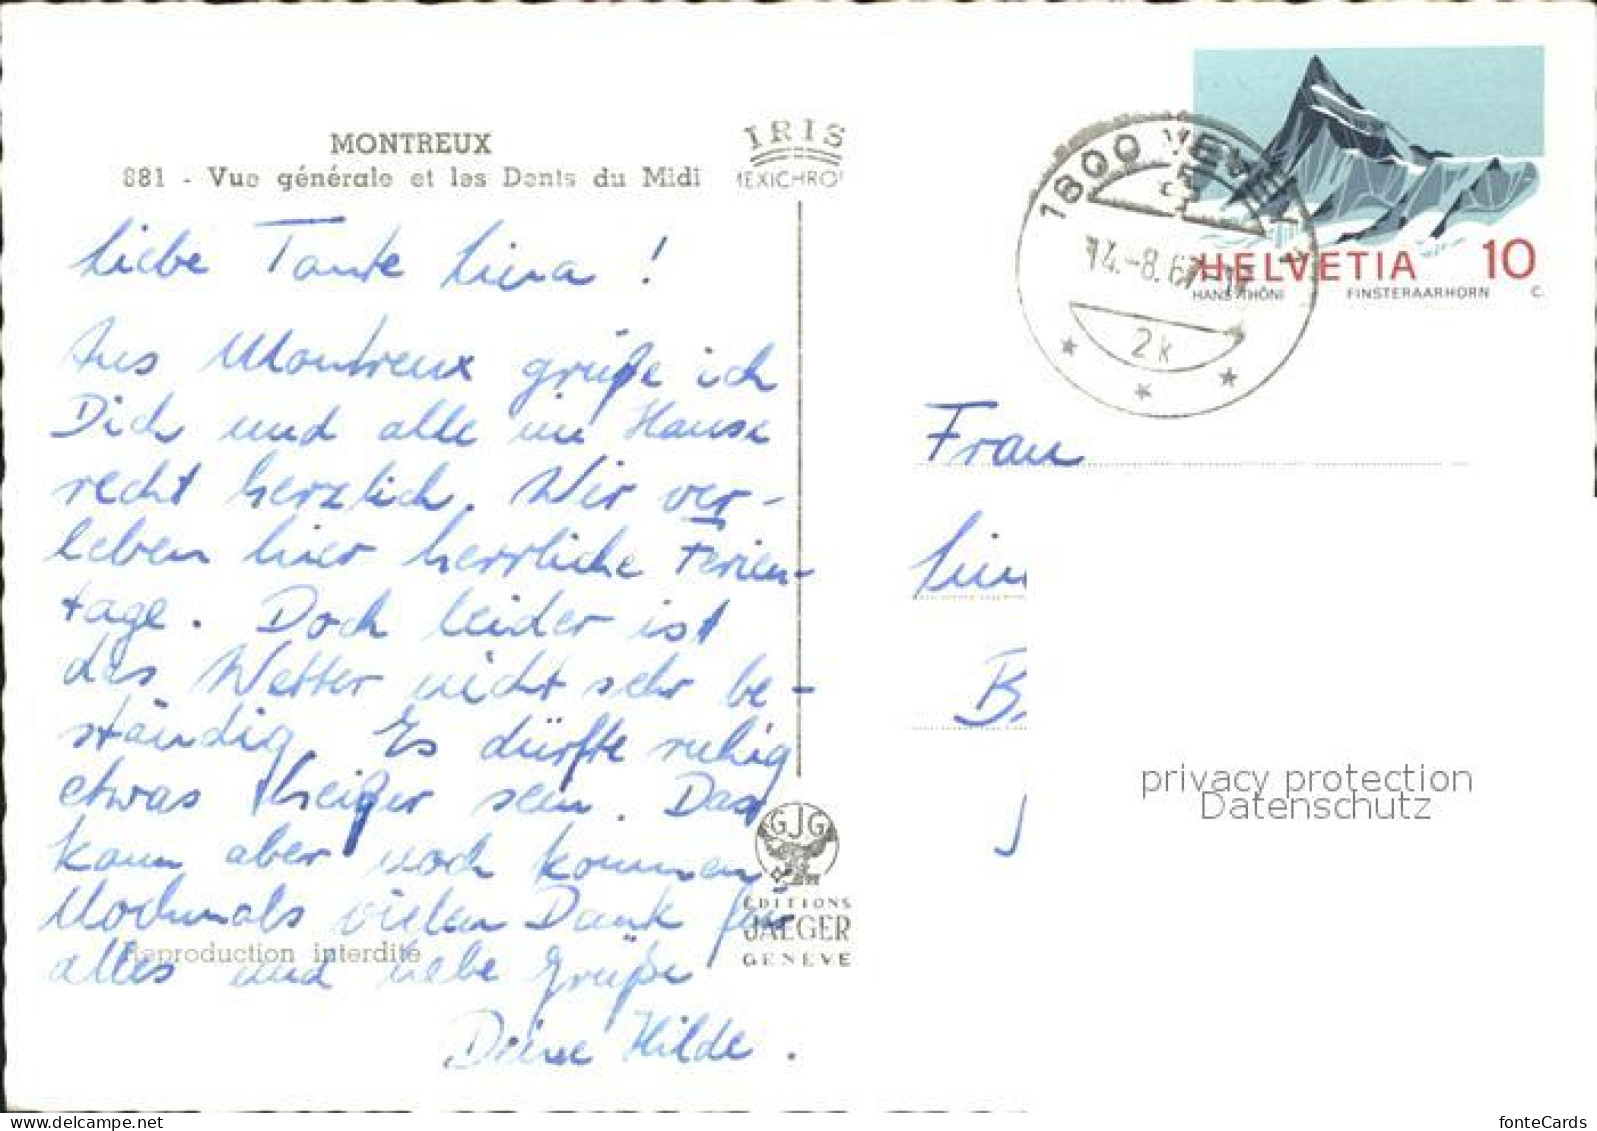 MONTREUX
881 - Vue générale et les Dents du Midi
IRIS
MEXICHROM
Liebe Tante Lina !
Aus Montreux grüße ich
Dich und alle im Hause
recht herzlich. Wir ver-
leben hier herrliche Ferien-
tage. Doch leider ist
das Wetter nicht sehr be-
ständig. Es dürfte ruhig
etwas heißer sein. Das
kann aber noch kommen.
Nochmals vielen Dank für
alles und liebe Grüße
Deine Hilde.
Reproduction interdite
GJG
EDITIONS
JAEGER
GENEVE
1800 VEVEY 1
14.-8.67
2k
HELVETIA 10
HANS THÖNI FINSTERAARHORN C.
Frau
privacy protection
Datenschutz
fonteCards